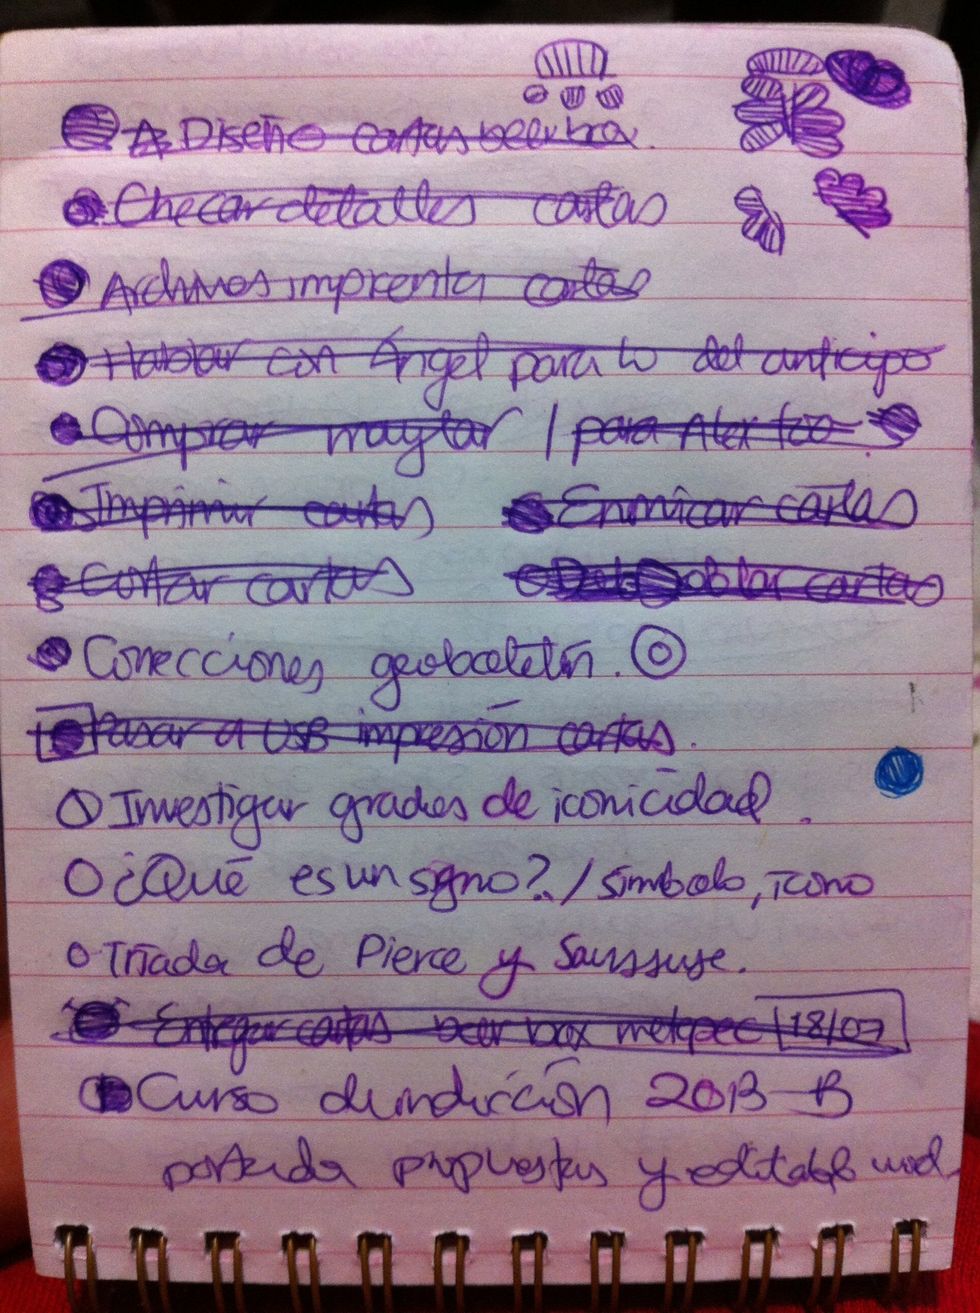 Diseño cartas beerbox
Checar detalles cartas
Archivos imprenta cartas
Hablar con Ángel para lo del anticipo
Comprar / para Alex too
Imprimir cartas Enmicar cartas
Cortar cartas Doblar cartas
Correcciones geoboletín.
Pasar a USB impresión cartas.
Investigar grados de iconicidad.
¿Qué es un signo? / símbolo, ícono
Triada de Pierce y Saussure.
Entregar cartas beer box metepec 18/07
Curso de inducción 2013-B
portada propuestas y editable